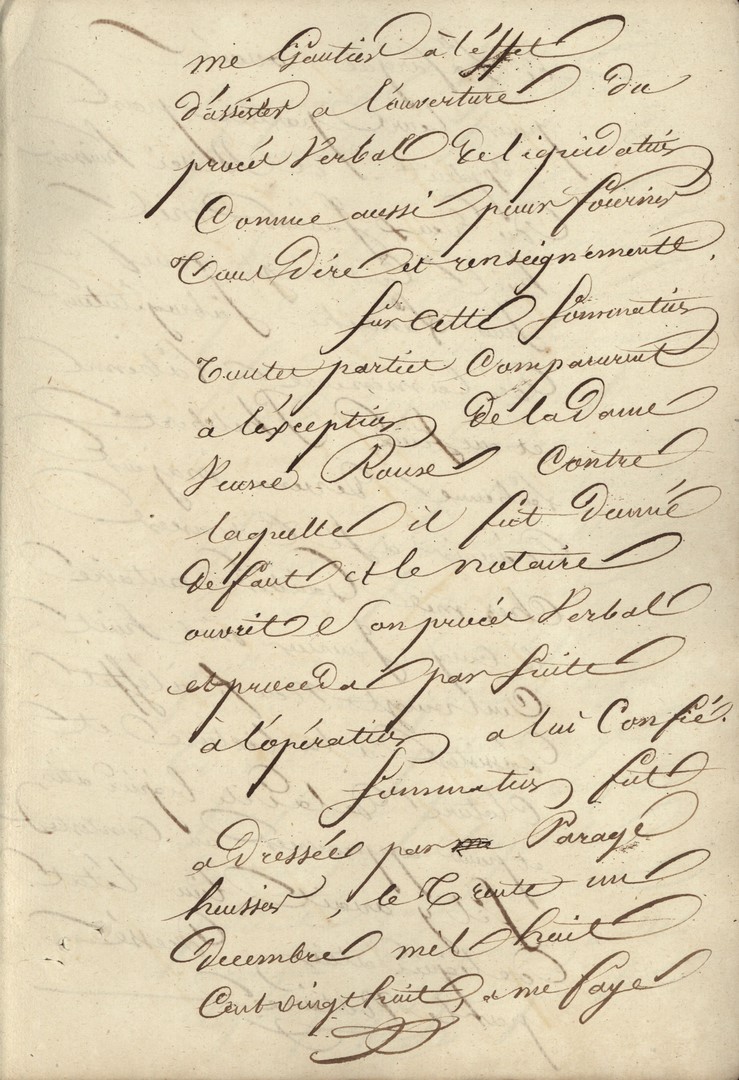 me Gautier à l'éffet
d'assister a l'ouverture du
procès Verbal de liquidation
Comme aussi pour fournir
Tous dire et renseignements.
Sur cette Sommation
Toutes parties Comparurent
a l'éxception de la Dame
Veuve Rouse Contre
laquelle il fut Donné
défaut et le notaire
ouvrit Son procès Verbal
et proceda par Suite
à l'opération a lui Confié.
Sommation fut
adressée par Parage
huissier, le Trente un
Decembre mil huit
Cent vingt huit, a me Faye